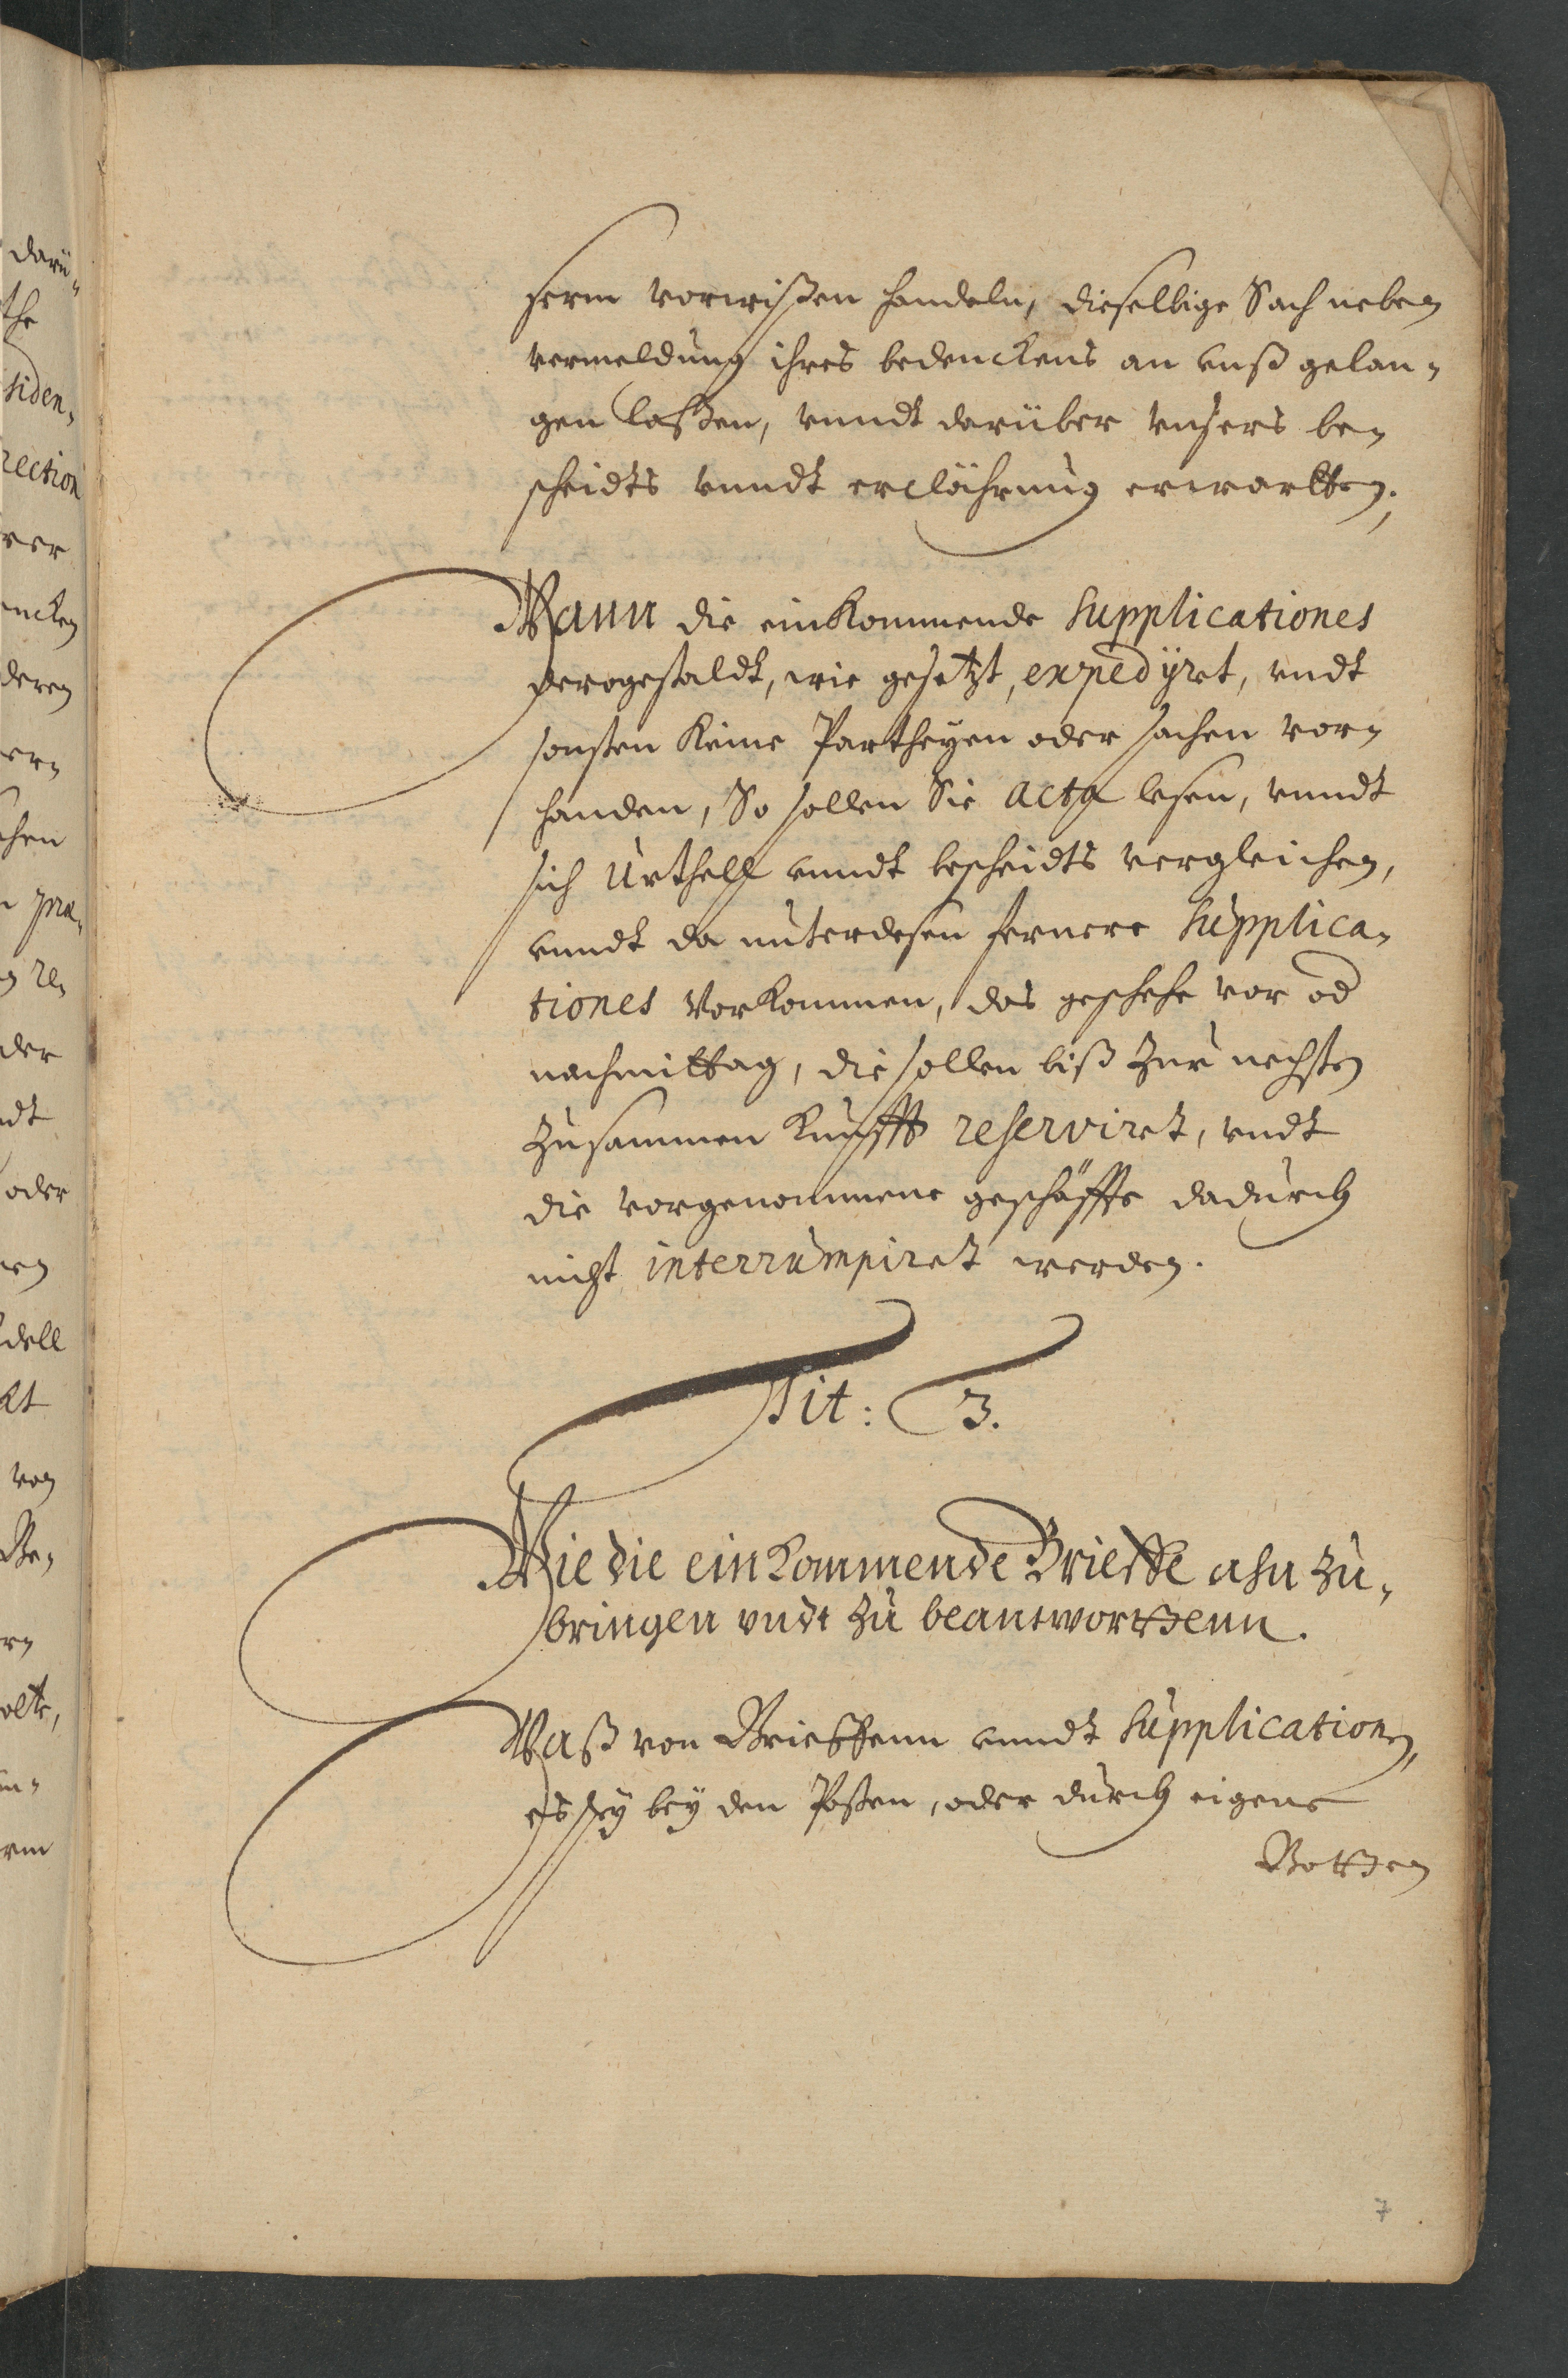 serm vorwißen handeln, dieselbige Sach neben
vermeldung ihres bedenckens an vnß gelan-
gen laßen, vnndt darüber vnsers be-
scheidts vnndt erclährung erwartten.
Wann die einkommende Supplicationes
derogestaldt, wie gesetzt, expedijret, vndt
sonsten keine Partheyen oder sachen vor-
handen, So sollen Sie Acta lesen, vnndt
sich Urthell vnndt bescheidts vergleichen,
vnndt da unterdesen fernere Supplica-
tiones vorkommen, das geschehe vor od
nachmittag, die sollen biß zur nechsten
zusammen kunfft reserviret, vndt
die vorgenommene geschäffte dadurch
nicht interrumpiret werden.
Tit: 3.
Wie die einkommende Brieffe ahn zu-
bringen vndt zu beantworttenn.
Waß von Brieffenn vnndt Supplication,
es sey bey den Posten, oder durch eigene
Botten
7